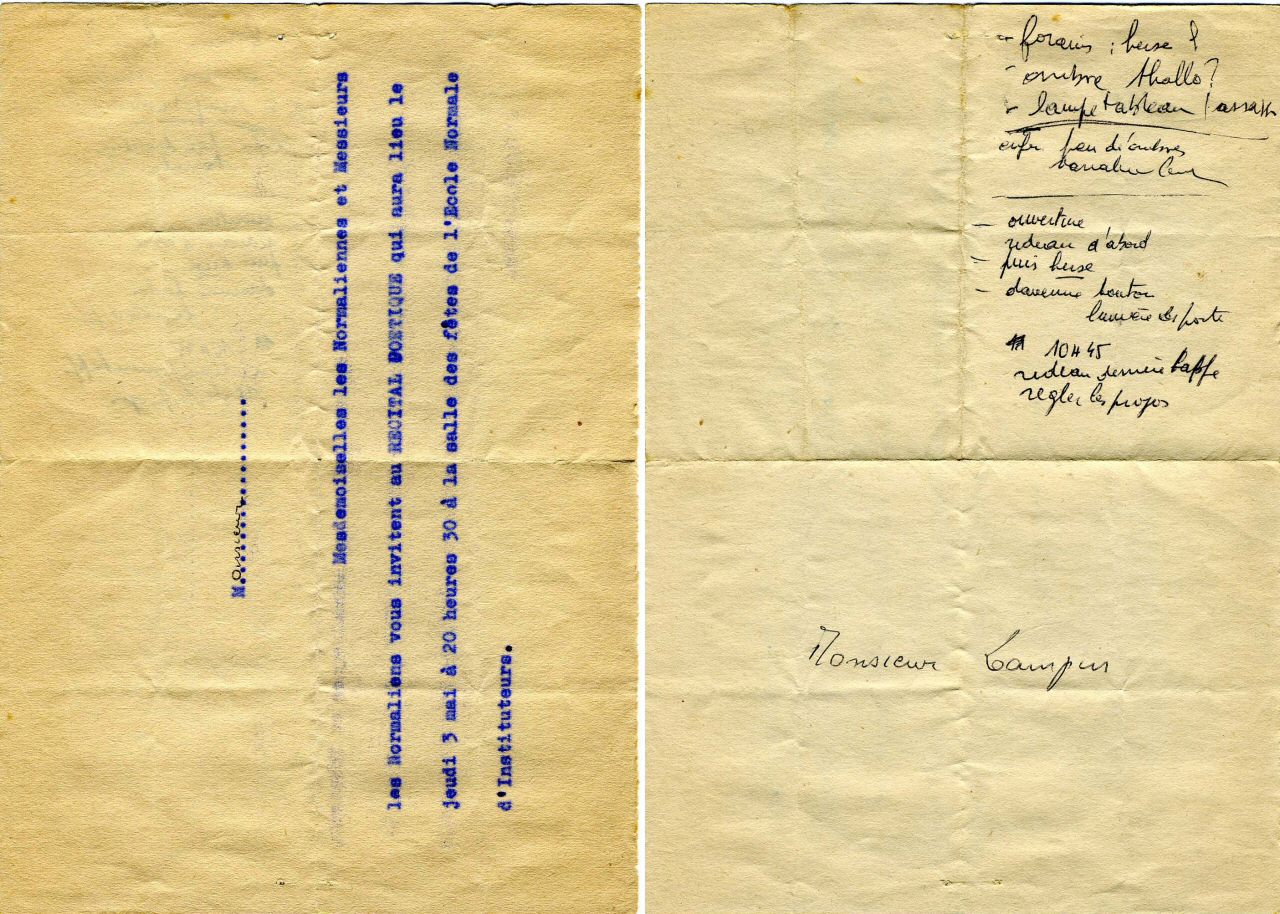 Monsieur..................
Mesdemoiselles les Normaliennes et Messieurs
les Normaliens vous invitent au RECITAL POETIQUE qui aura lieu le
jeudi 3 mai à 20 heures 30 à la salle des fêtes de l'Ecole Normale
d'Instituteurs.
- forains : herse
- ombre thallo?
- lampe tableau
peu d'ombres
- ouverture
rideau d'abord
- puis herse
- bouton
lumière des porte
10H45
rideau derrière
régler les propos
Monsieur